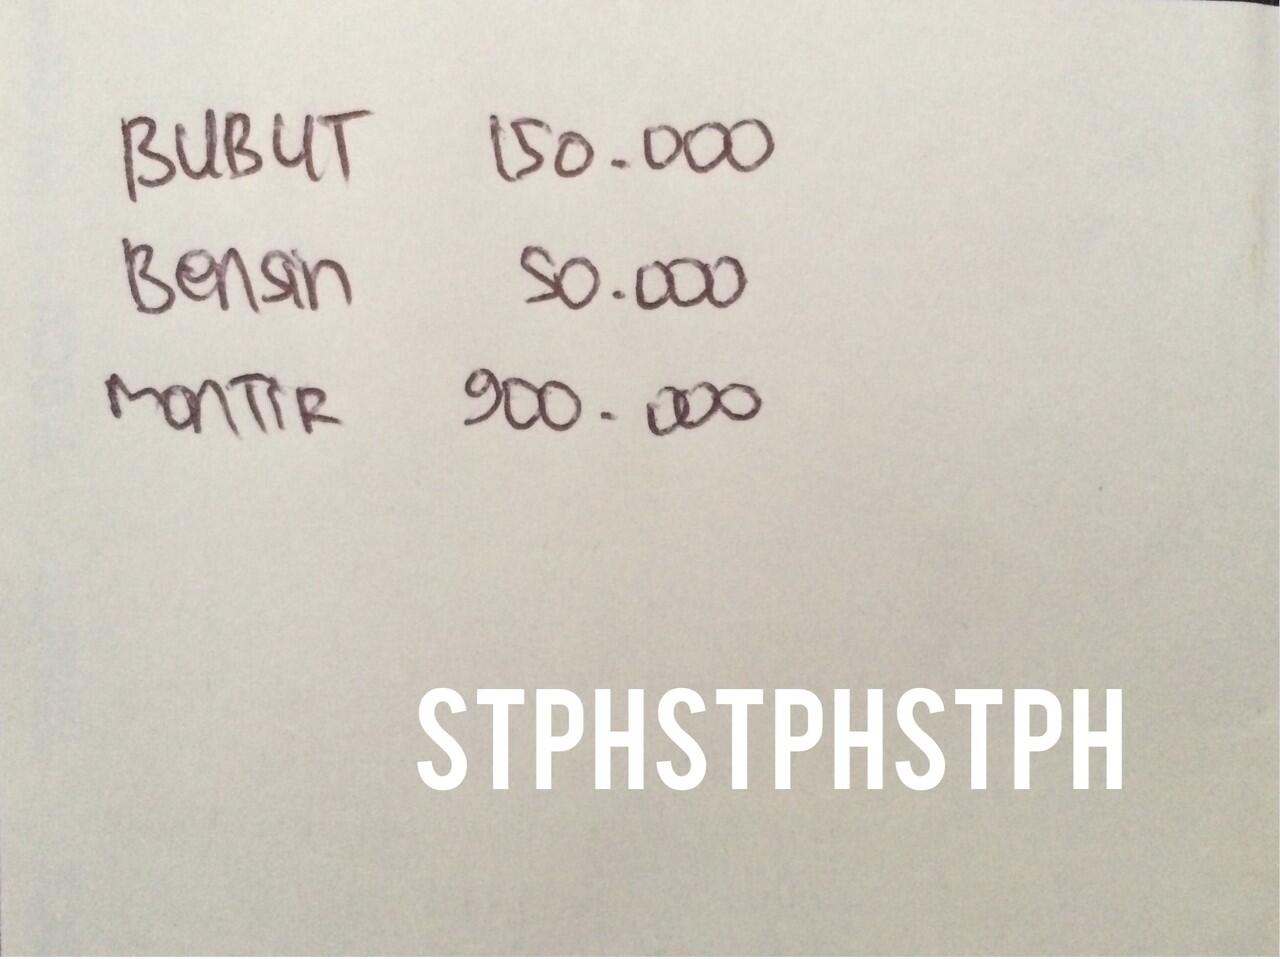 BUBUT 150.000
Bensin 50.000
MONTIR 900.000
STPHSTPHSTPH